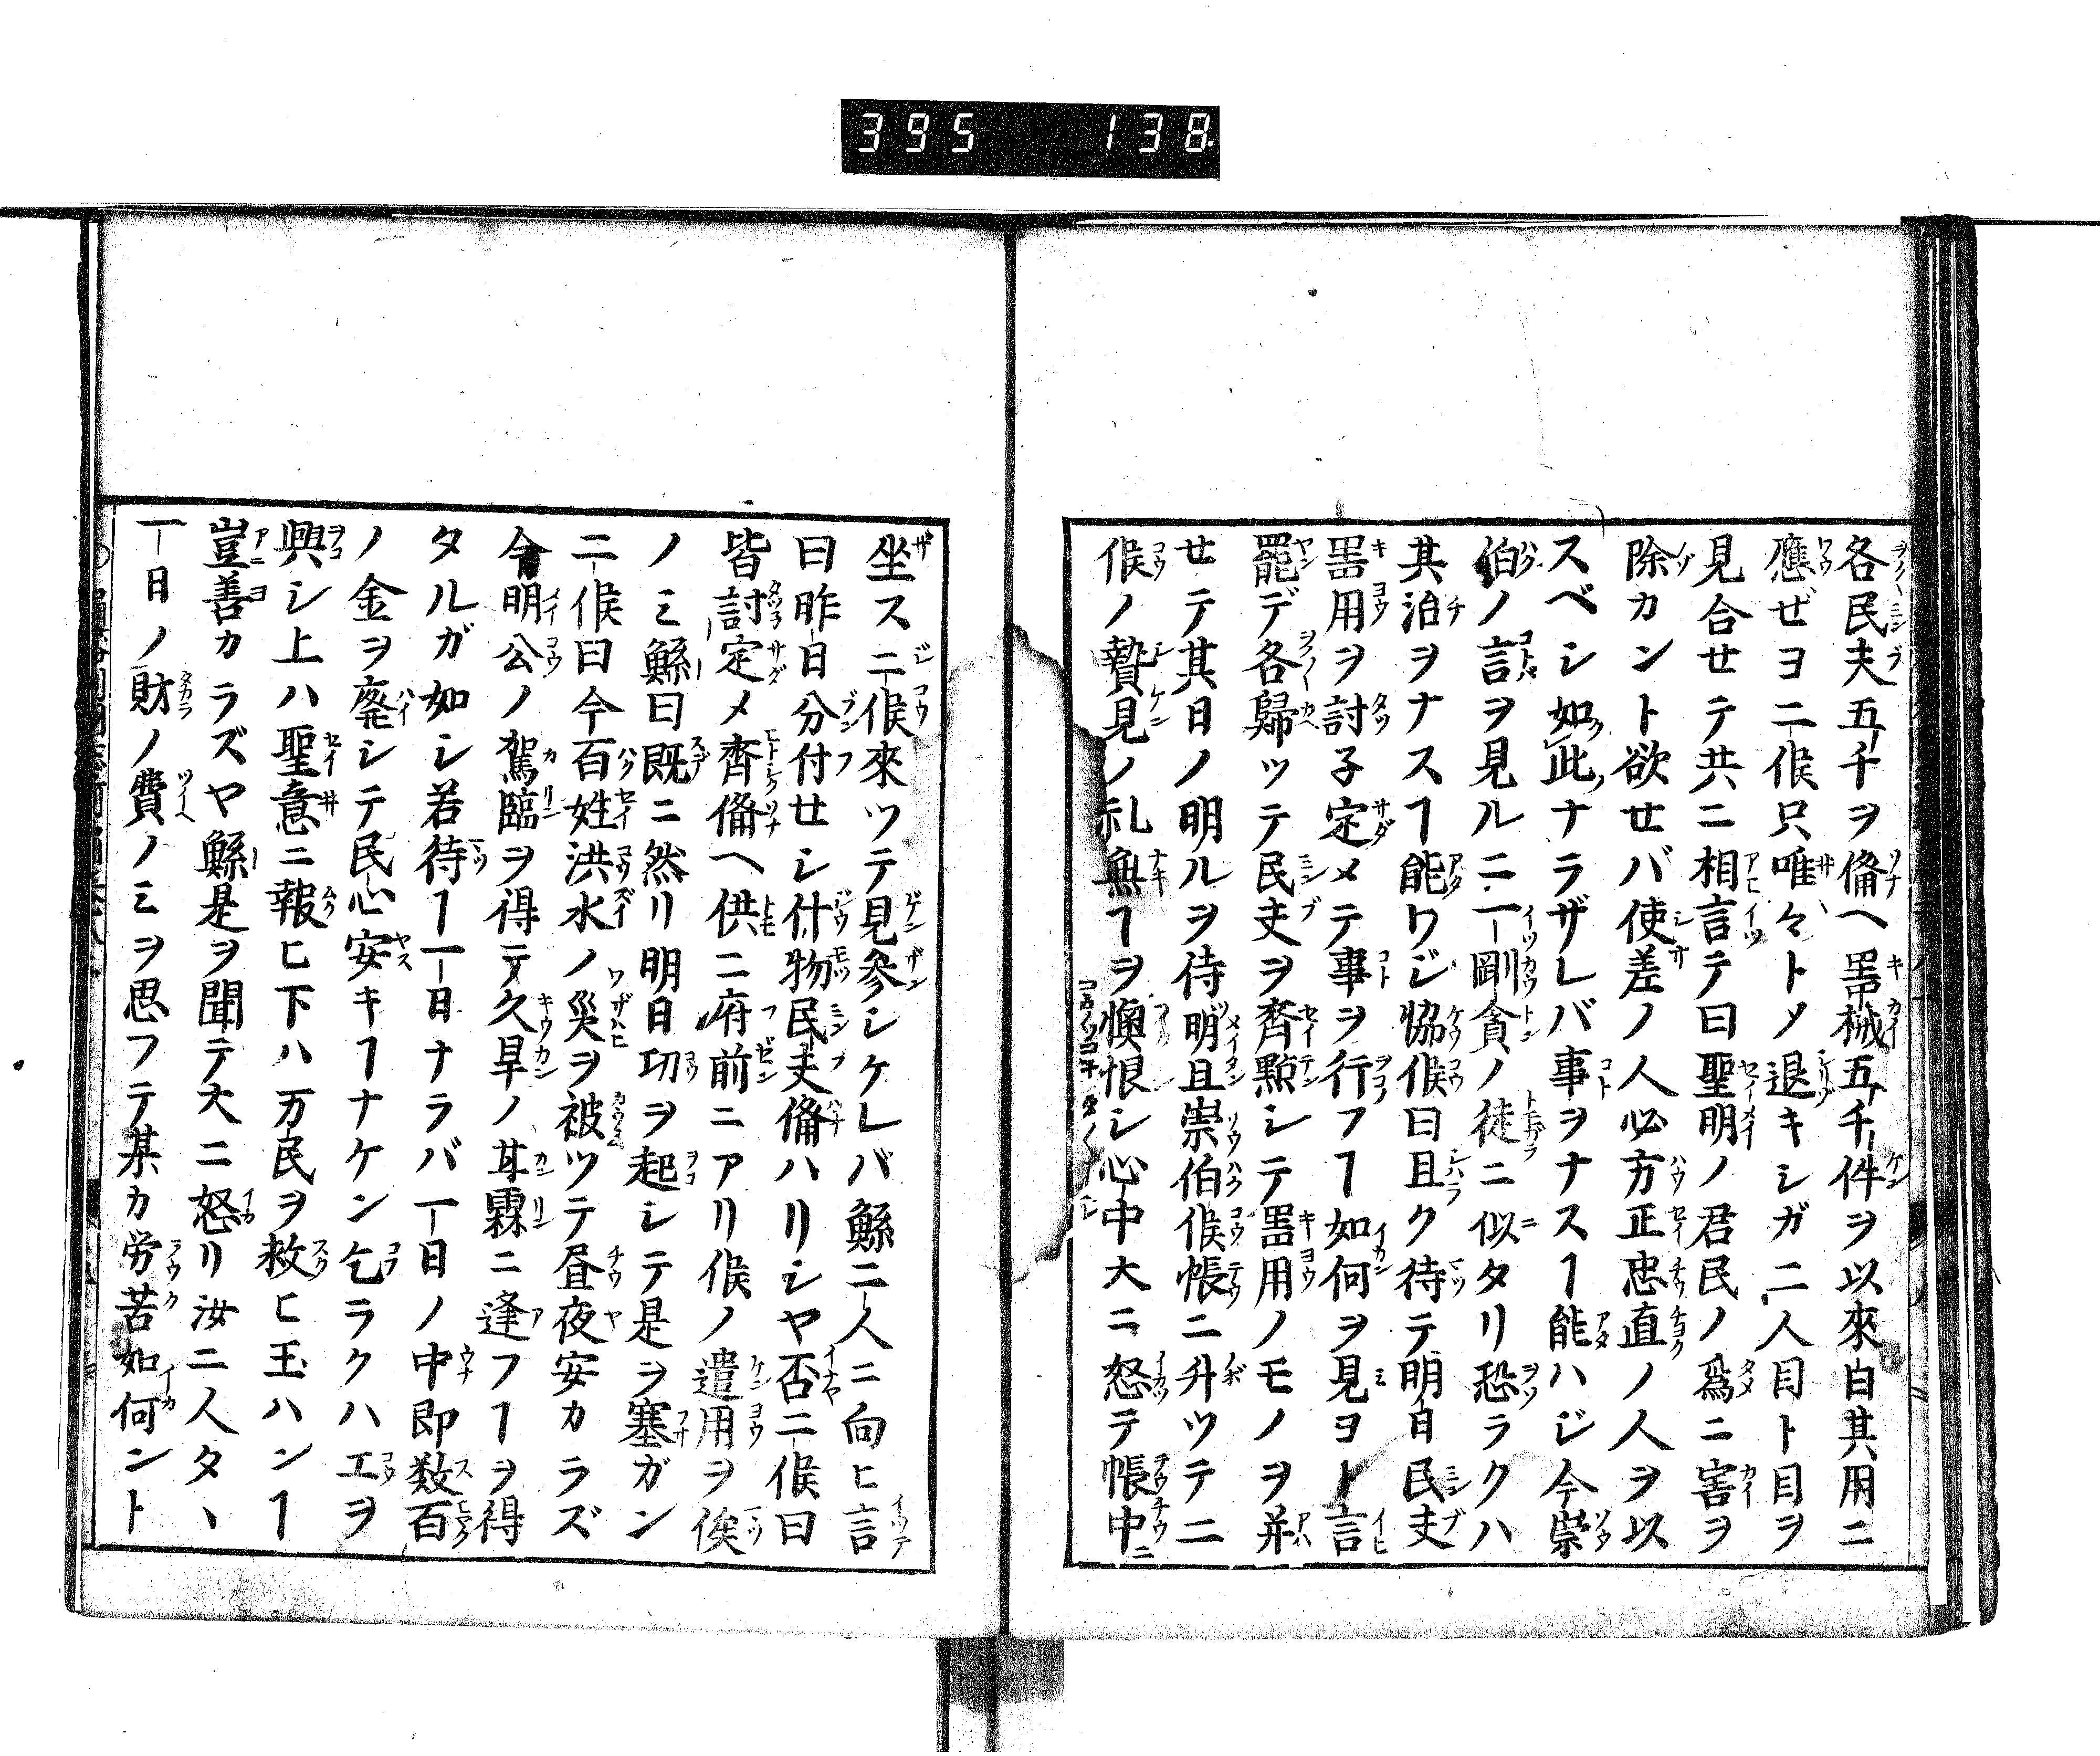 395 138
各民夫五千ヲ備ヘ噐械五千件ヲ以來白其用ニ
應ぜヨ二候只唯々トメ退キシガ二人目ト目ヲ
見合せテ共ニ相言テ曰聖明ノ君民ノ爲ニ害ヲ
除カント欲せバ使差ノ人必方正忠直ノ人ヲ以
スベシ如此ナラザレバ事ヲナスヿ能ハジ今崇
伯ノ言ヲ見ルニ一剛貪ノ徒ニ似タリ恐ラクハ
其治ヲナスヿ能ワじ恊候曰且ク待テ明日民夫
噐用ヲ討子定メテ事ヲ行フヿ如何ヲ見ヨト言
罷デ各歸ッテ民夫ヲ齊點シテ噐用ノモノヲ并
せテ其日ノ明ルヲ待明旦崇伯候帳ニ升ツテ二
候ノ贄見ノ礼無ヿヲ懊恨シ心中大ニ怒テ帳中ニ
坐ス二候來ツテ見參シケレバ鯀二人ニ向ヒ言
曰昨日分付せシ什物民夫備ハリシヤ否二候曰
皆討定メ齊備ヘ供ニ府前ニアリ候ノ遣用ヲ俟
ノミ鯀曰既ニ然リ明日功ヲ起シテ是ヲ塞ガン
二候曰今百姓洪水ノ災ヲ被ツテ昼夜安カラズ
今明公ノ駕臨ヲ得テ久旱ノ甘霖ニ逢フヿヲ得
タルガ如シ若待ヿ一日ナラバ一日ノ中即数百
ノ金ヲ廃シテ民心安キヿナケン乞ラクハエヲ
興シ上ハ聖意ニ報ヒ下ハ万民ヲ救ヒ玉ハンヿ
豈善カラズヤ鯀是ヲ聞テ大ニ怒リ汝二人タヽ
一日ノ財ノ費ノミヲ思フテ某カ労苦如何ント